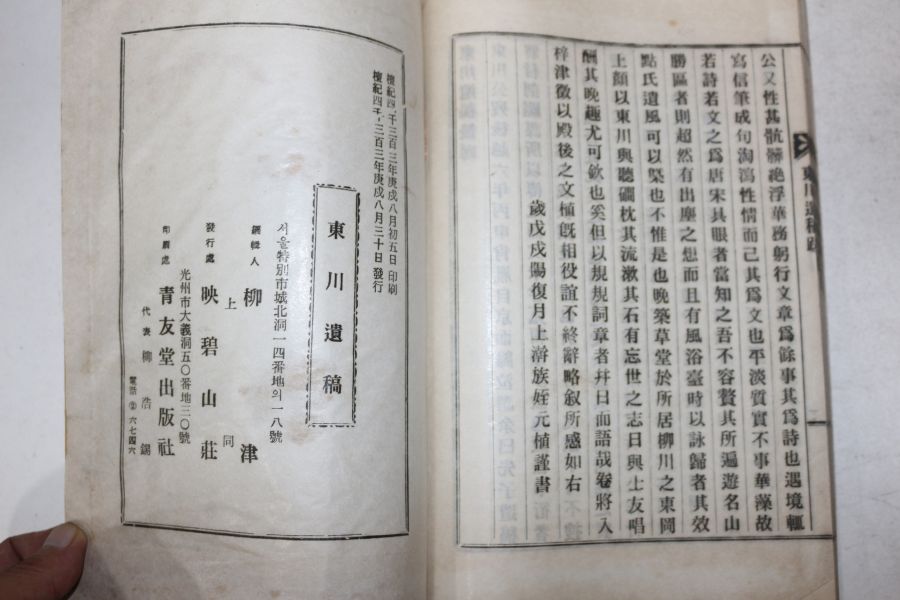 公又性甚骯髒絶浮華務躬行文章爲餘事其爲詩也遇境輒
寫信筆成句淘瀉性情而已其爲文也平淡質實不事華藻故
若詩若文之爲唐宋具眼者當知之吾不容贅其所遍遊名山
勝區者則超然有出塵之想而且有風浴臺時以詠歸者其效
點氏遺風可以槩也不惟是也晚築草堂於所居柳川之東岡
上顔以東川與聽礀枕其流漱其石有忘世之志日與士友唱
酬其晚趣尤可欽也奚但以規規詞章者幷日而語哉卷將入
梓津徵以殿後之文植旣相役誼不終辭略叙所感如右
歲戊戌陽復月上澣族姪元植謹書
東川遺稿跋
檀紀四千三百三年庚戌八月初五日 印刷
檀紀四千三百三年庚戌八月三十日 發行
東川遺稿
서울特別市城北洞一四番地의一八號
編輯人 柳津
上 同
發行處 映碧山莊
光州市大義洞五〇番地三〇號
印刷處 青友堂出版社
代表 柳浩錫
電話 ② 六七四六